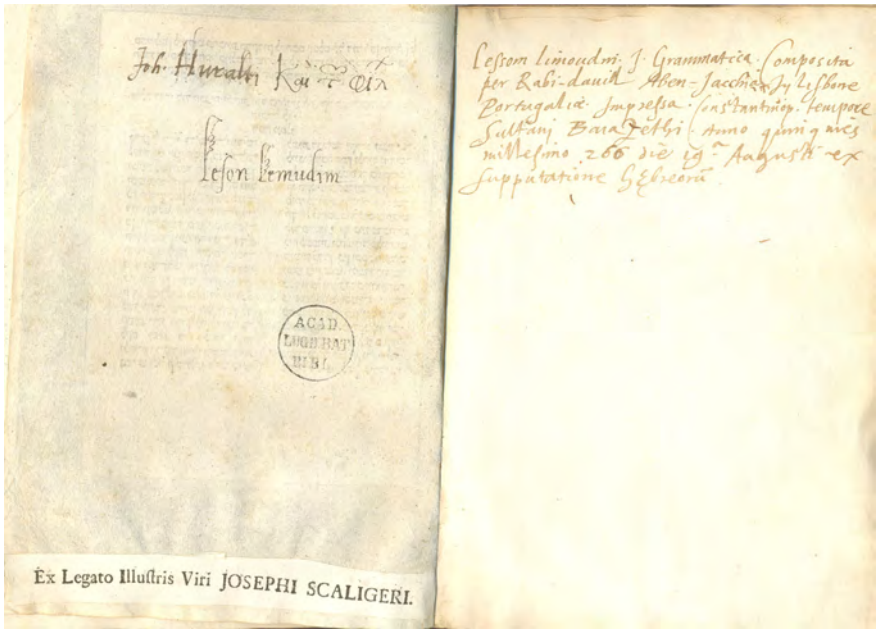 Joh. Huralti Καὶ τ φιλ
leson lemudim
ACAD.
LUGD BAT
BIBL
Ex Legato Illuſtris Viri JOSEPHI SCALIGERI.
Leſſom limoudm. J. Grammatica. Compoſita
per Rabi-david Aben-Jacchia Jy Lisbone
Portugaliæ. Impreſſa. Conſtantinop. tempore
Sultani Baiazethi. Anno quinquies
milleſimo 266 die 19ᵃ Auguſti ex
ſupputatione hębreorũ.